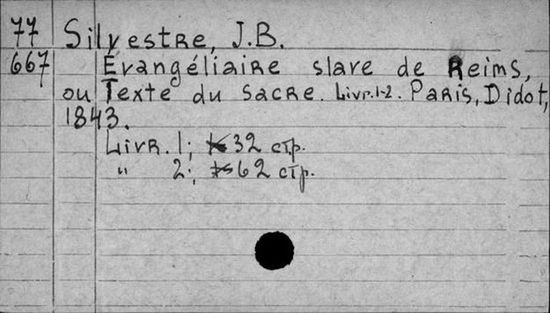 77 Silvestre, J.B.
667 Evangéliaire slave de Reims,
ou Texte du Sacre. Livr. 1-2. Paris, Didot,
1843.
Livr. 1; 32 стр.
" 2; 62 стр.